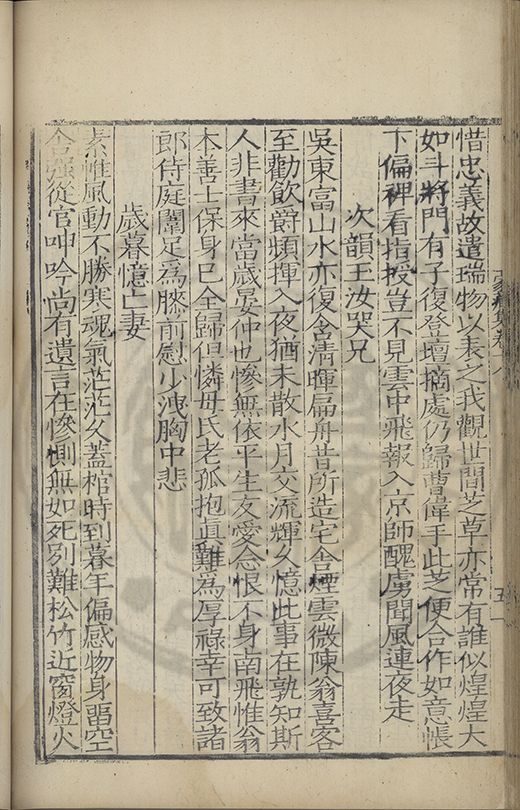 惜忠義故遣瑞物以表之我觀世間芝草亦常有誰似煌煌大
如斗將門有子復登壇摘處仍歸曹偉手此芝便合作如意帳
下偏裨看指授豈不見雲中飛報入京師醜虜聞風連夜走
次韻王汝哭兄
吳東富山水亦復含清暉扁舟昔所造宅舍煙雲微陳翁喜客
至勸飲爵頻揮入夜猶未散水月交流輝久憶此事在孰知斯
人非書來當歲晏仲也慘無依平生友愛念恨不身南飛惟翁
本善士保身已全歸但憐母氏老孤抱眞難為厚祿幸可致諸
郎侍庭闈足為膝前慰少洩胸中悲
歲暮憶亡妻
素帷風動不勝寒魂氣茫茫久蓋棺時到暮年偏感物身畱空
舍強從官呻吟尚有遺言在慘惻無如死別難松竹近窗燈火